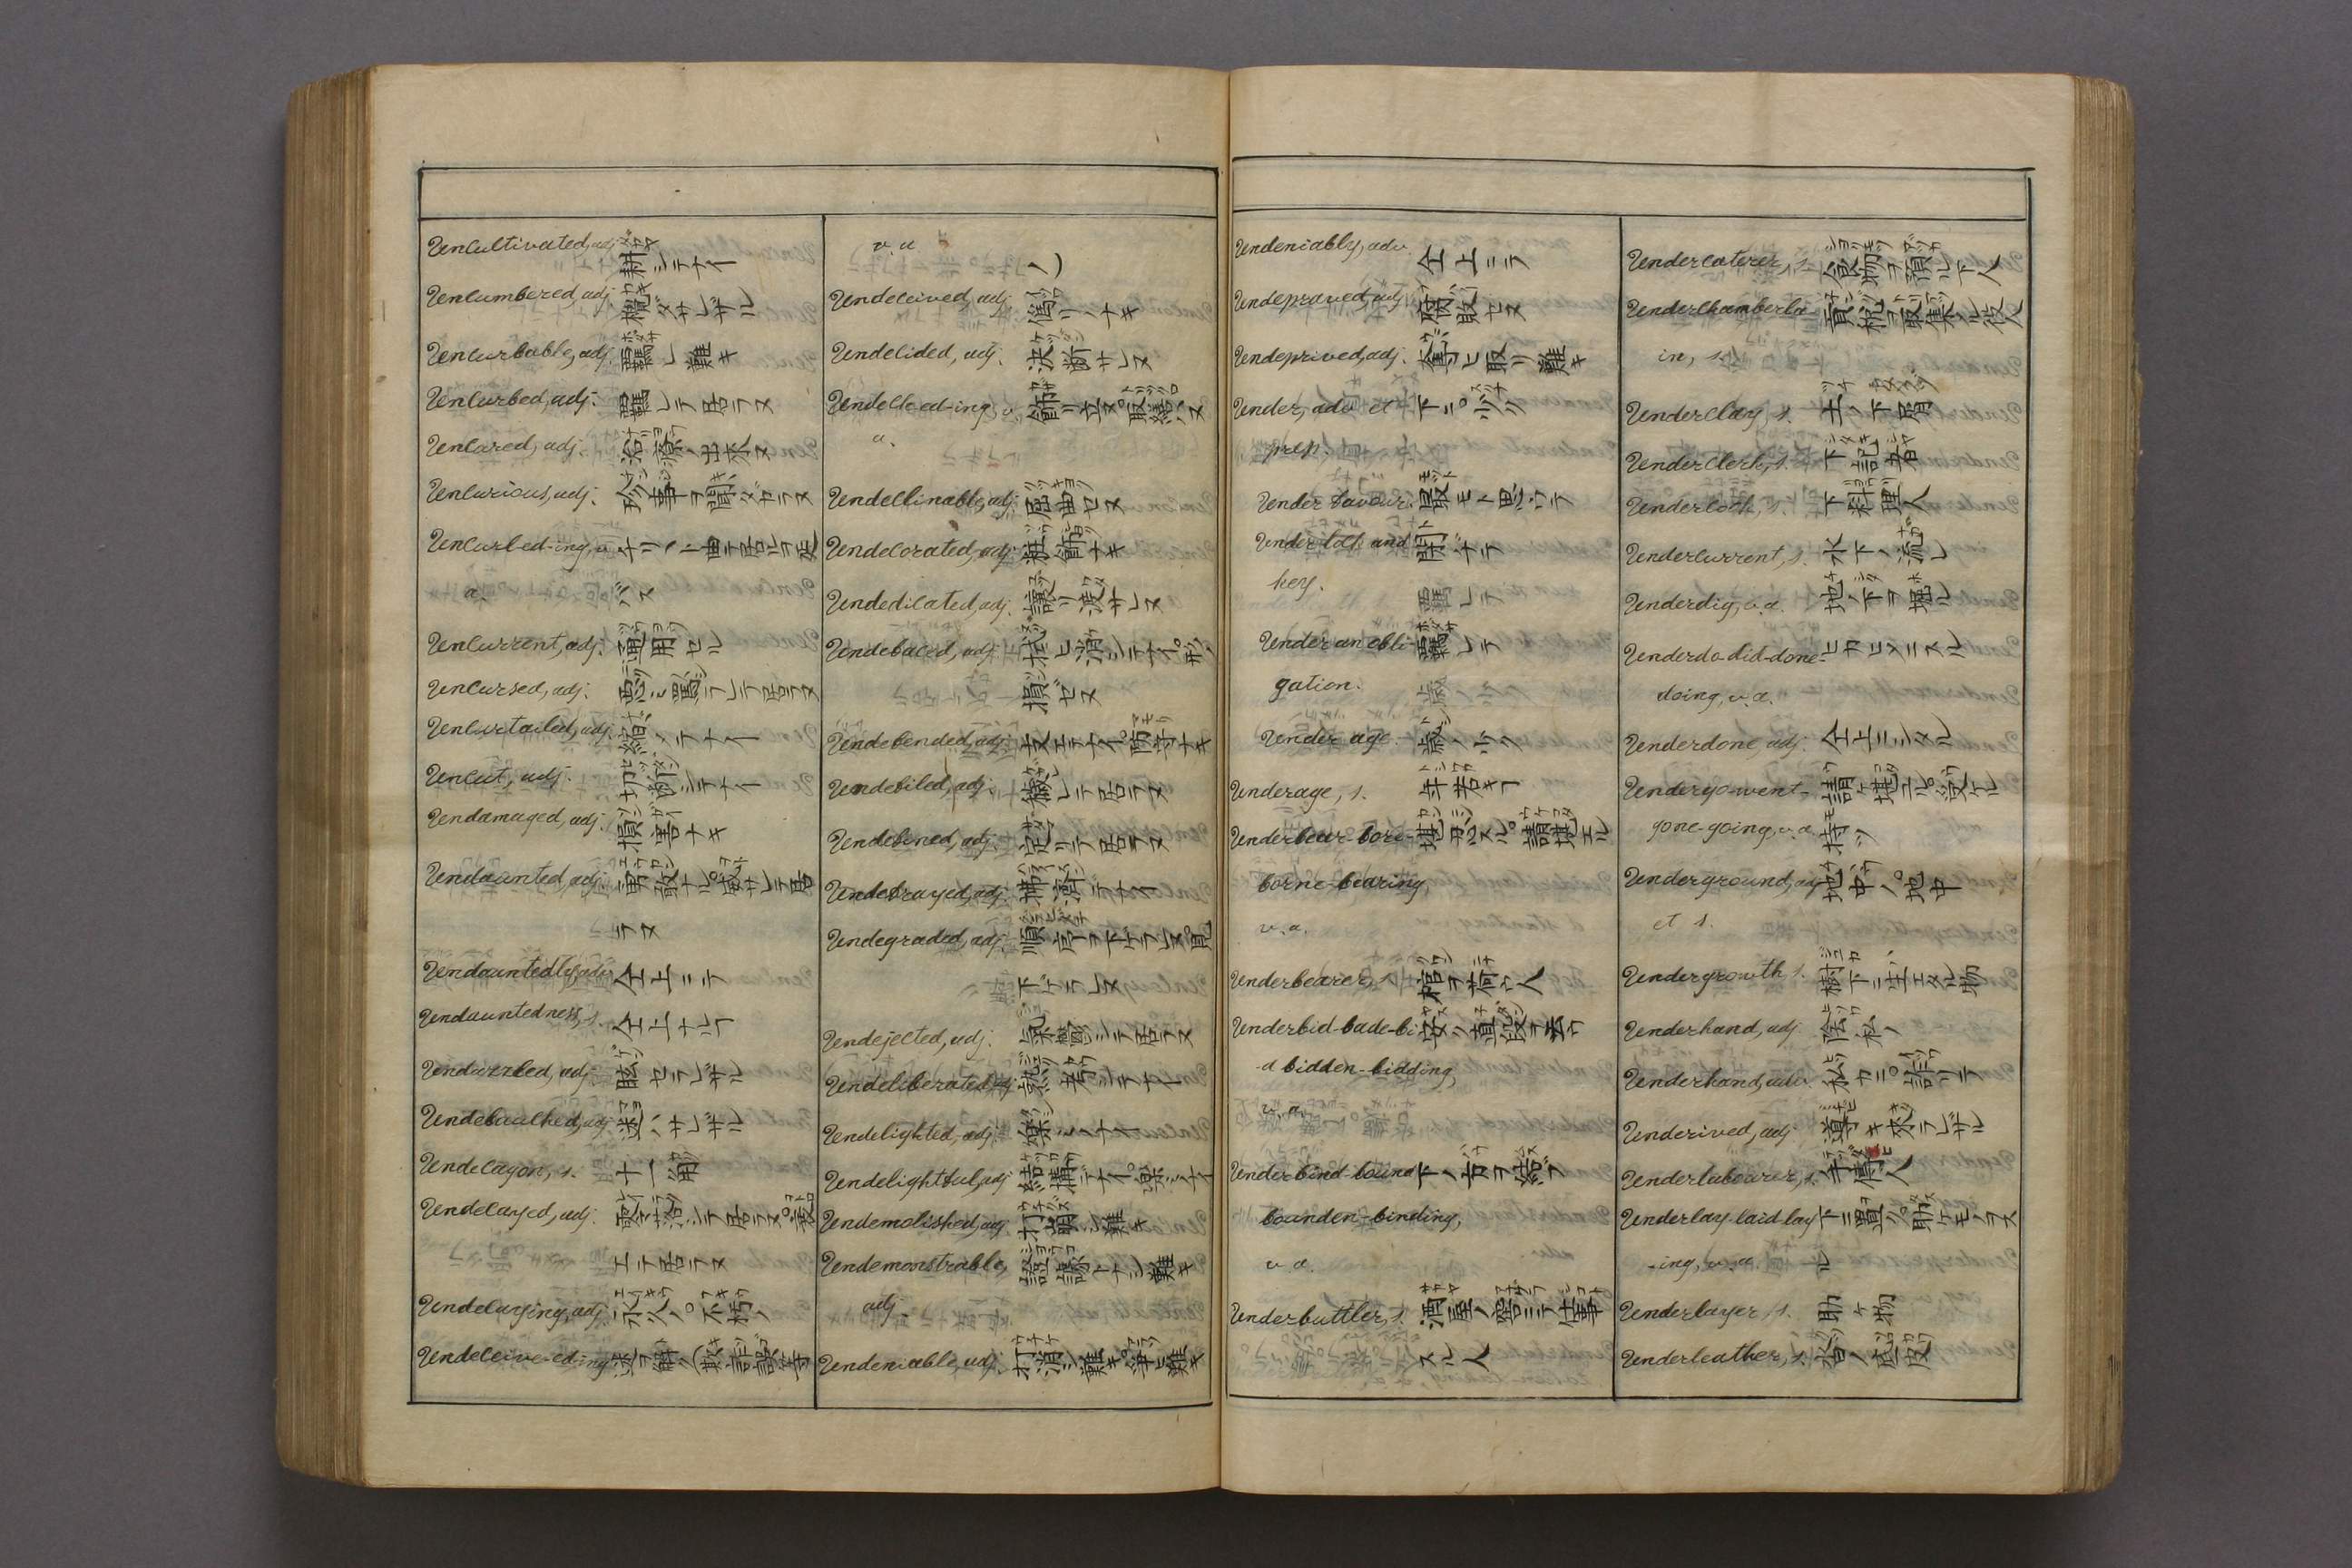 Uncultivated, adj. 耕シテナイ
Uncumbered, adj. サレザル
Uncurbable, adj. 羈シ難キ
Uncurbed, adj. 羈シテ居ラヌ
Uncured, adj. 治療ノ出来ヌ
Uncurious, adj. 珍事ヲ聞キタガラヌ
Uncurl-ed-ing, v.
a.
Uncurrent, adj. 通用セル
Uncursed, adj. 悪ミ罵ラレテ居ラヌ
Uncurtailed, adj. 縮メテナイ
Uncut, adj. 切断シテナイ
Undamaged, adj. 損害ナキ
Undaunted, adj. 勇敢ナル。サレテ居
ラヌ
Undauntedly, adv. 仝上ニテ
Undauntedness, s. 仝上ナルヿ
Undazzled, adj. 眩セラレザル
Undebauched, adj. 迷ハサレザル
Undecagon, s. 十一角
Undecayed, adj. 零落シテ居ラヌ。衰
エテ居ラヌ
Undecaying, adj. 永久ノ。不朽ノ
Undeceive-ed-ing 迷ヲ解ク(欺詐謬等
v. a. ノ)
Undeceived, adj. 偽リノナキ
Undecided, adj. 決断サレヌ
Undeck-ed-ing, v. 飾リ立ヌ。取繕ハヌ
a.
Undeclinable, adj. 屈曲セヌ
Undecorated, adj. 粧飾ナキ
Undedicated, adj. 譲リ渡サレヌ
Undefaced, adj. 拭ヒ消シテナイ。形
損ゼヌ
Undefended, adj. 支エテナイ。防守ナキ
Undefiled, adj. 穢レテ居ラヌ
Undefined, adj. 定リテ居ラヌ
Undefrayed, adj. 拂濟デナイ
Undegraded, adj. 順序ヲ下ゲラレヌ。見
下ゲラレヌ
Undejected, adj. 気鬱シテ居ラヌ
Undeliberated, adj. 熟考シテナイ
Undelighted, adj. 楽シミノナイ
Undelightful, adj. 結構デナイ。楽シミナイ
Undemolished, adj. 打崩シ難キ
Undemonstrable, 證諚トナシ難キ
adj.
Undeniable, adj. 打消シ難キ。争ヒ難キ
Undeniably, adv. 仝上ニテ
Undepraved, adj. 腐敗セヌ
Undeprived, adj. 奪ヒ取リ難キ
Under, adv. et 下ニ。少ナク
prep.
Under favour. 最モト思ウテ
Under lock and 閉ヂテ
key.
Under an obli- 羈レテ
gation.
Under age. 歳ノ少ク
Underage, s. 年若キヿ
Underbear-bore- 堪忍スル。請堪エル
borne-bearing,
v. a.
Underbearer, s. 棺ヲ荷ウ人
Underbid-bade-bi 安ク直段ヲ云ウ
d bidden-bidding,
v. a.
Underbind-bound 下ノ方ヲ結ブ
bounden-binding,
v. a.
Underbuttler, s. 酒屋ノ窖ニテ仕事
スル人
Undercaterer, s. 食物ヲ預ル下人
Underchamberla- 貢税ヲ取集ル役人
in, s.
Underclay, s. 土ノ下層
Underclerk, s. 下記者
Undercook, s. 下料理人
Undercurrent, s. 水下ノ流レ
Underdig, v. a. 地ノ下ヲ堀ル
Underdo-did-done- ヒカヒメニスル
doing, v. a.
Underdone, adj. 仝上ニシタル
Undergo-went- 請ケ堪エル。受ケル
gone-going, v. a. 持ツ
Underground, adj. 地中ノ。地中
et s.
Undergrowth s. 樹下ニ生エタル物
Underhand, adj. 陰私ノ
Underhand, adv. 私カニ。詐リテ
Underived, adj. 導キ来ラレザル
Underlabourer, s. 手傳人
Underlay-laid-lay 下ニ置ク。助ケモノヲス
-ing, v. a. ル
Underlayer, s. 助ケ物
Underleather, s. 沓ノ底皮